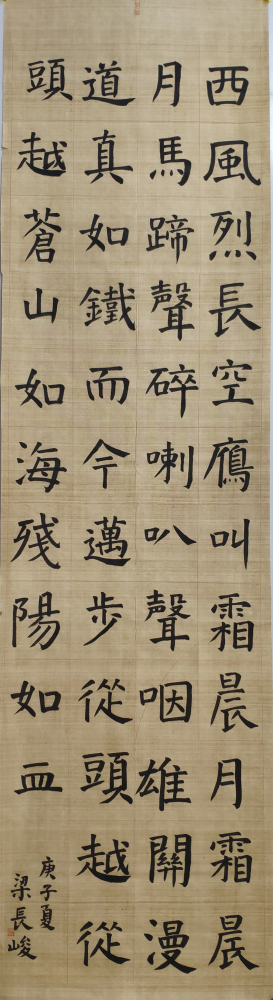 西風烈長空鴈叫霜晨月霜晨
月馬蹄聲碎喇叭聲咽雄關漫
道真如鐵而今邁步從頭越從
頭越蒼山如海殘陽如血
庚子夏
梁長峻